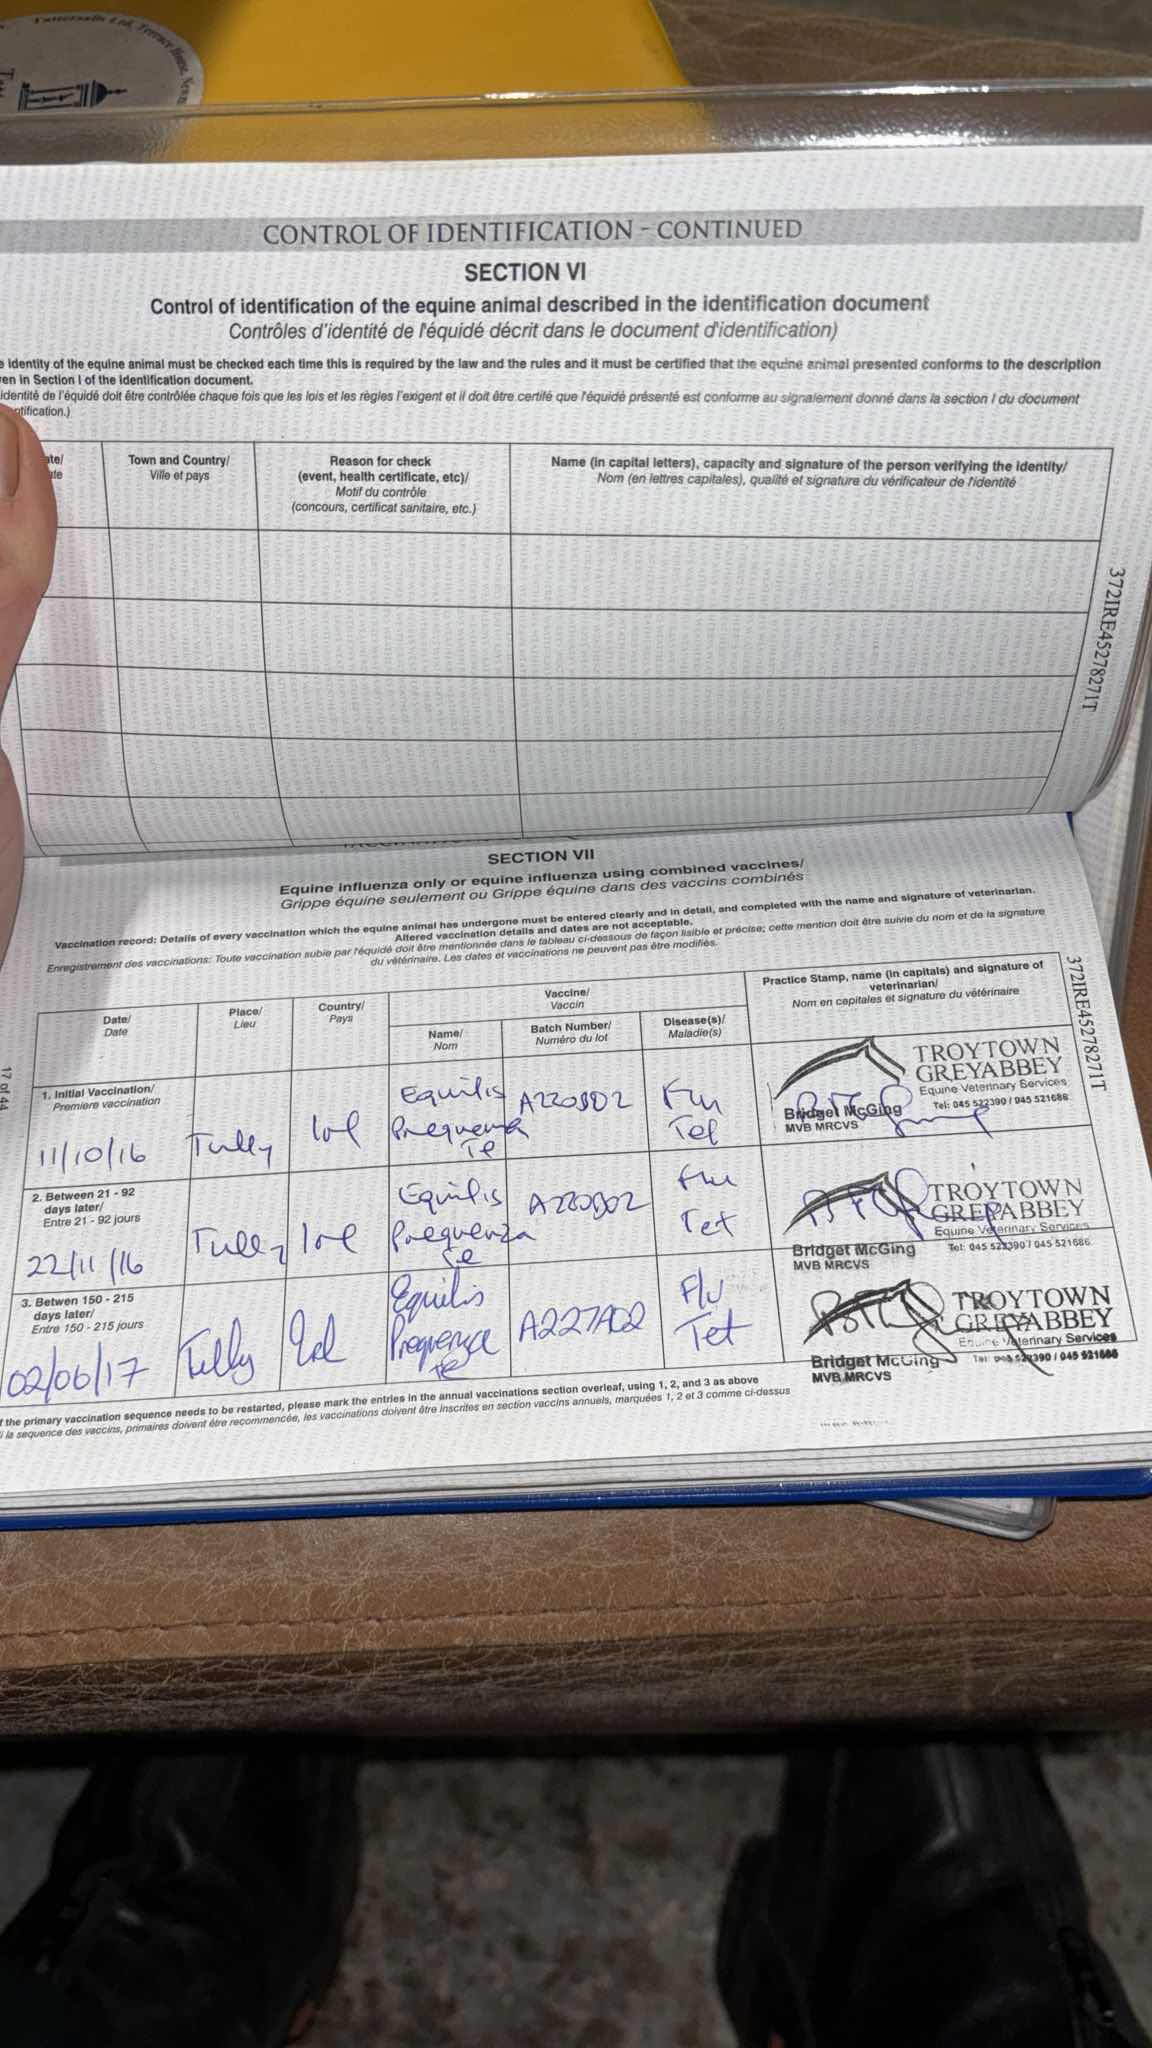 Tattersalls Ltd, Terrace House, New
CONTROL OF IDENTIFICATION - CONTINUED
SECTION VI
Control of identification of the equine animal described in the identification document
Contrôles d'identité de l'équidé décrit dans le document d'identification)
e identity of the equine animal must be checked each time this is required by the law and the rules and it must be certified that the equine animal presented conforms to the description
en in Section I of the identification document.
identité de l'équidé doit être contrôlée chaque fois que les lois et les règles l'exigent et il doit être certifé que l'équidé présenté est conforme au signalement donné dans la section I du document
ntification.)
ate/
te
Town and Country/
Ville et pays
Reason for check
(event, health certificate, etc)/
Motif du contrôle
(concours, certificat sanitaire, etc.)
Name (in capital letters), capacity and signature of the person verifying the identity/
Nom (en lettres capitales), qualité et signature du vérificateur de l'identité
372IRE45278271T
SECTION VII
Equine influenza only or equine influenza using combined vaccines/
Grippe équine seulement ou Grippe équine dans des vaccins combinés
Vaccination record: Details of every vaccination which the equine animal has undergone must be entered clearly and in detail, and completed with the name and signature of veterinarian.
Altered vaccination details and dates are not acceptable.
Enregistrement des vaccinations: Toute vaccination subie par l'équidé doit être mentionnée dans le tableau ci-dessous de façon lisible et précise; cette mention doit être suivie du nom et de la signature
du vétérinaire. Les dates et vaccinations ne peuvent pas être modifiés.
372IRE45278271T
17 of 44
Date/
Date
Place/
Lieu
Country/
Pays
Vaccine/
Vaccin
Name/
Nom
Batch Number/
Numéro du lot
Disease(s)/
Maladie(s)
Practice Stamp, name (in capitals) and signature of
veterinarian/
Nom en capitales et signature du vétérinaire
1. Initial Vaccination/
Premiere vaccination
11/10/16
Tully
Irel
Equilis
Prequenza
Te
A220B02
Flu
Tet
TROYTOWN
GREYABBEY
Equine Veterinary Services
Bridget McGing
Tel: 045 522390 / 045 521686
MVB MRCVS
2. Between 21 - 92
days later/
Entre 21 - 92 jours
22/11/16
Tully
Irel
Equilis
Prequenza
Te
A220B02
Flu
Tet
TROYTOWN
GREYABBEY
Equine Veterinary Services
Bridget McGing
Tel: 045 522390 / 045 521686
MVB MRCVS
3. Betwen 150 - 215
days later/
Entre 150 - 215 jours
02/06/17
Tully
Irel
Equilis
Prequenza
Te
A227A02
Flu
Tet
TROYTOWN
GREYABBEY
Equine Veterinary Services
Bridget McGing
Tel: 045 522390 / 045 521686
MVB MRCVS
f the primary vaccination sequence needs to be restarted, please mark the entries in the annual vaccinations section overleaf, using 1, 2, and 3 as above
i la sequence des vaccins, primaires doivent être recommencée, les vaccinations doivent être inscrites en section vaccins annuels, marquées 1, 2 et 3 comme ci-dessus